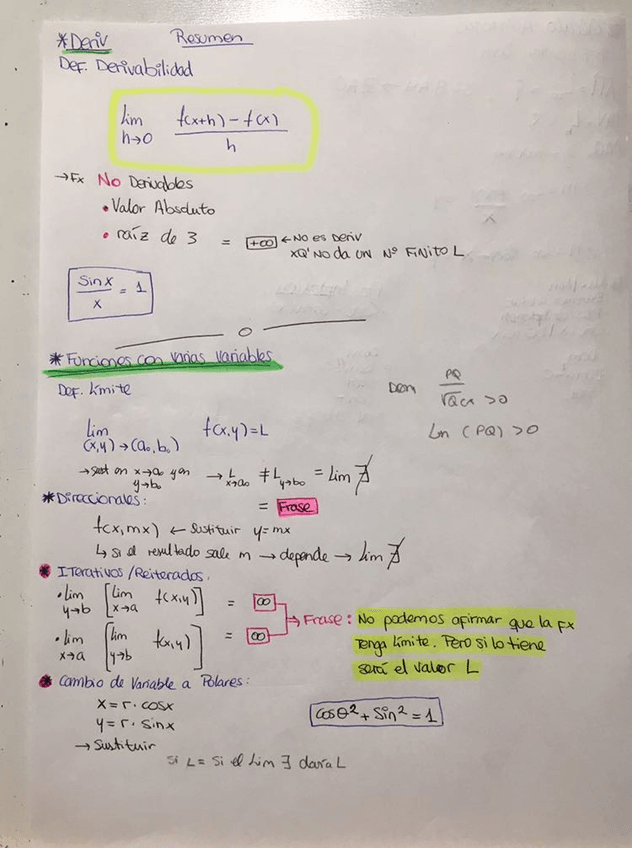 *Deriv Resumen
Def. Derivabilidad
lim h→0 f(x+h) - f(x) / h
→ Fx No Derivables
• Valor Absoluto
• raíz de 3 = +∞ ← No es Deriv
xq' No da un Nº Finito L
Sin x / x = 1
* Funciones con varias variables
Def. Límite
Den PQ / √Q(x >0
Ln (PQ) >0
lim (x,y)→(a₀,b₀) f(x,y)=L
→ sust en x→a₀ y en y→b₀ → L x→a₀ ≠ L y→b₀ = Lim ∄
* Direccionales: = Frase
f(x,mx) ← Sustituir y=mx
↳ Si el resultado sale m → depende → Lim ∄
* Iterativos/Reiterados.
• lim y→b [lim x→a f(x,y)] = ∞
• lim x→a [lim y→b f(x,y)] = ∞
→ Frase: No podemos afirmar que la Fx
tenga límite. Pero si lo tiene
será el valor L
* Cambio de Variable a Polares:
x = r · cosx
y = r · sinx
cosθ² + Sin² = 1
→ Sustituir
Si L = Si el Lim ∃ dara L